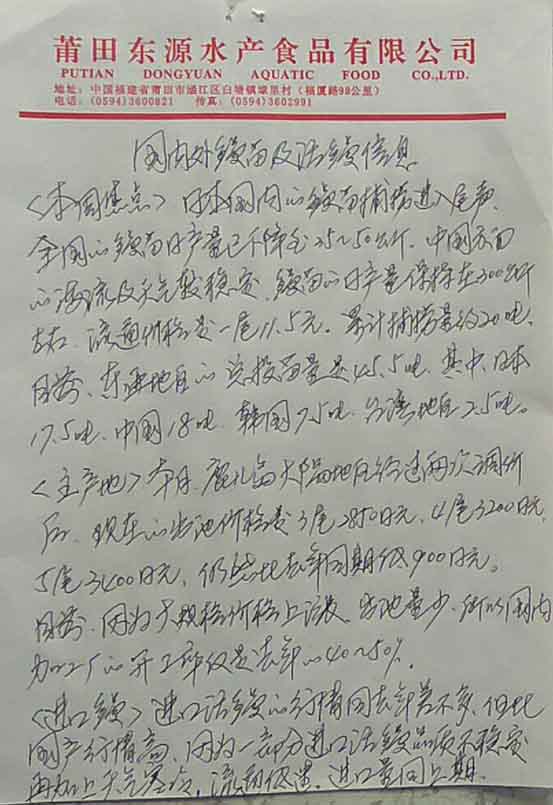 莆田东源水产食品有限公司
PUTIAN DONGYUAN AQUATIC FOOD CO.,LTD.
地址：中国福建省莆田市涵江区白塘镇埭里村（福厦路98公里）
电话：(0594)3600821 传真：(0594)3602991
国内外鳗苗及活鳗信息
<本周焦点> 日本国内心鳗苗捕捞进入尾声,
全国心鳗苗日产量已下降至25~50公斤. 中国方面
心海流及天气较稳定、鳗苗心日产量保持在300公斤
左右. 流通价格是一尾11.5元. 累计捕捞量约20吨.
目前、东亚地区心总投苗量是45.5吨. 其中、日本
17.5吨、中国18吨、韩国7.5吨、台湾地区2.5吨。
<主产地> 本月、鹿儿岛大隅地区经过两次调价
后、现在心出池价格是3尾2850日元、4尾3200日元、
5尾3400日元、仍然比去年同期低900日元。
目前、因为大规格价格上涨、出池量少、所以国内
加工厂心开工率仅是去年心40~50%.
<进口鳗> 进口活鳗心行情同去年差不多、但比
国产行情高、因为一部分进口活鳗品质不稳定
再加上天气寒冷, 流动低迷, 进口量同上期.